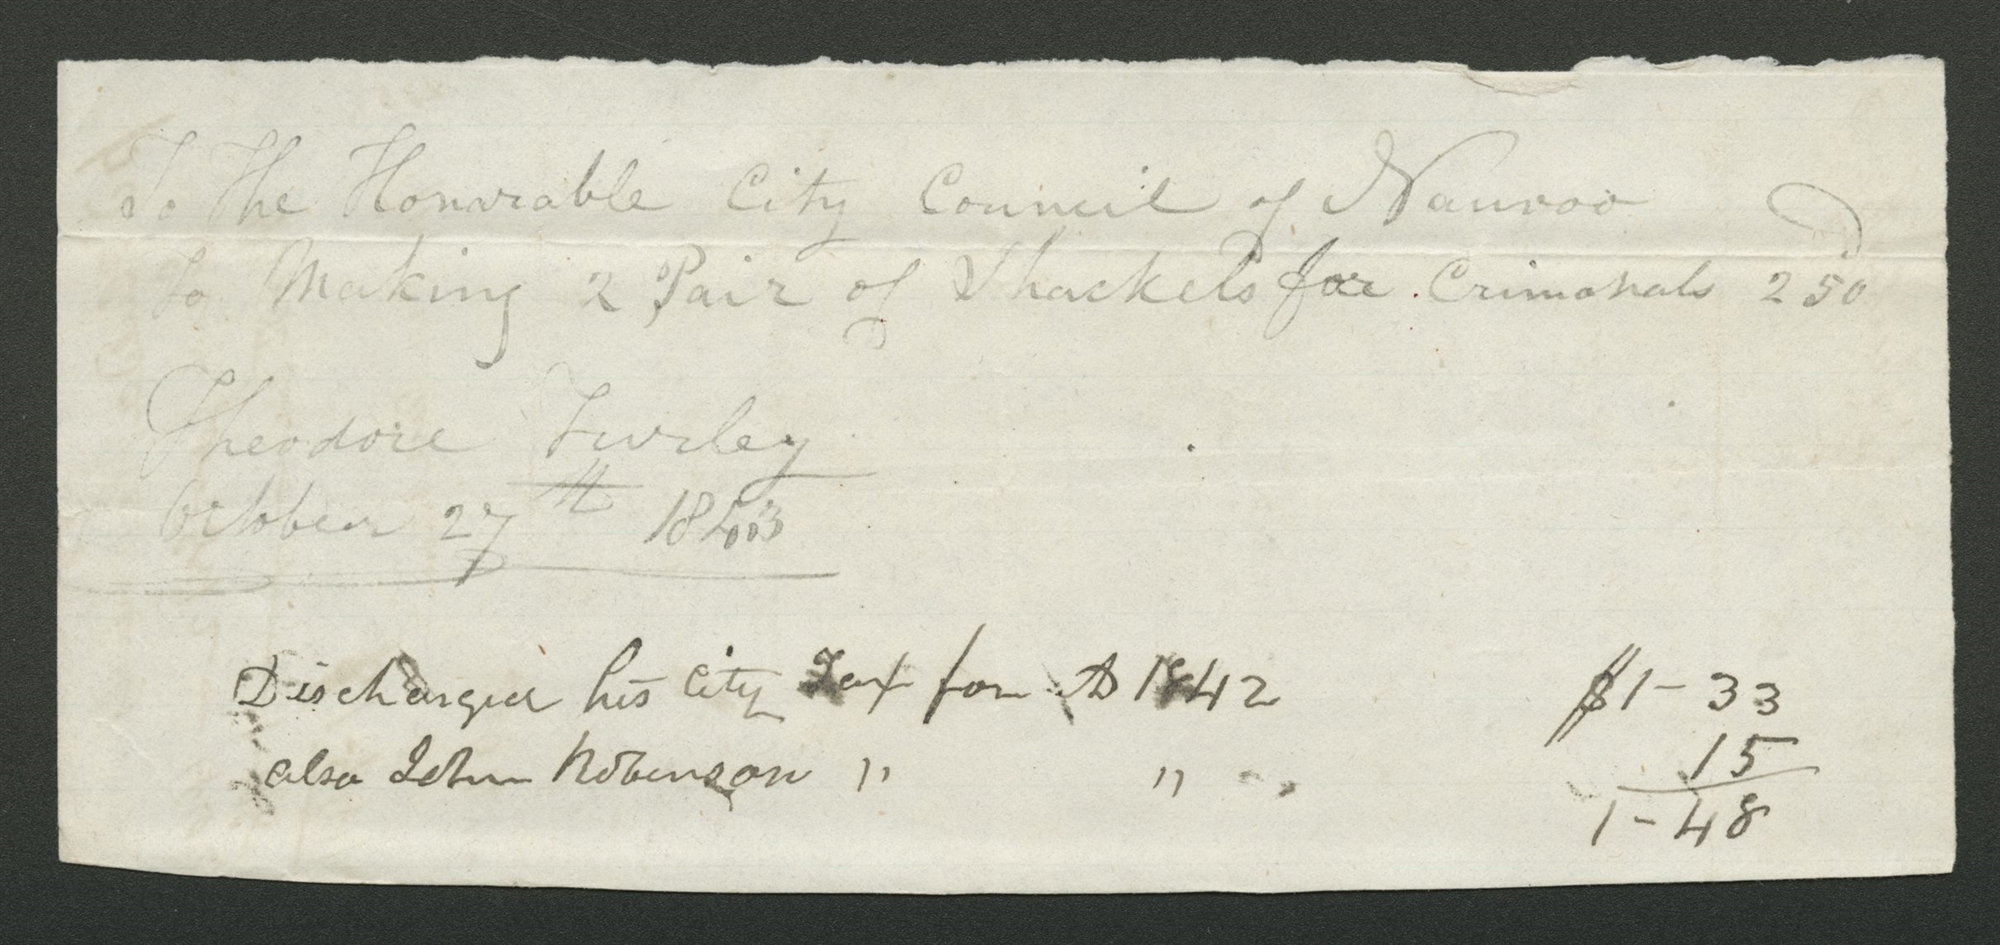 To The Honorable City Council of Nauvoo D
To Making 2 Pair of Shackels for Crimonals 2 50
Theodore Turley
October 27th 1843
Discharged his City Tax for AD 1842 $1-33
also John Robinson " " 15
1-48